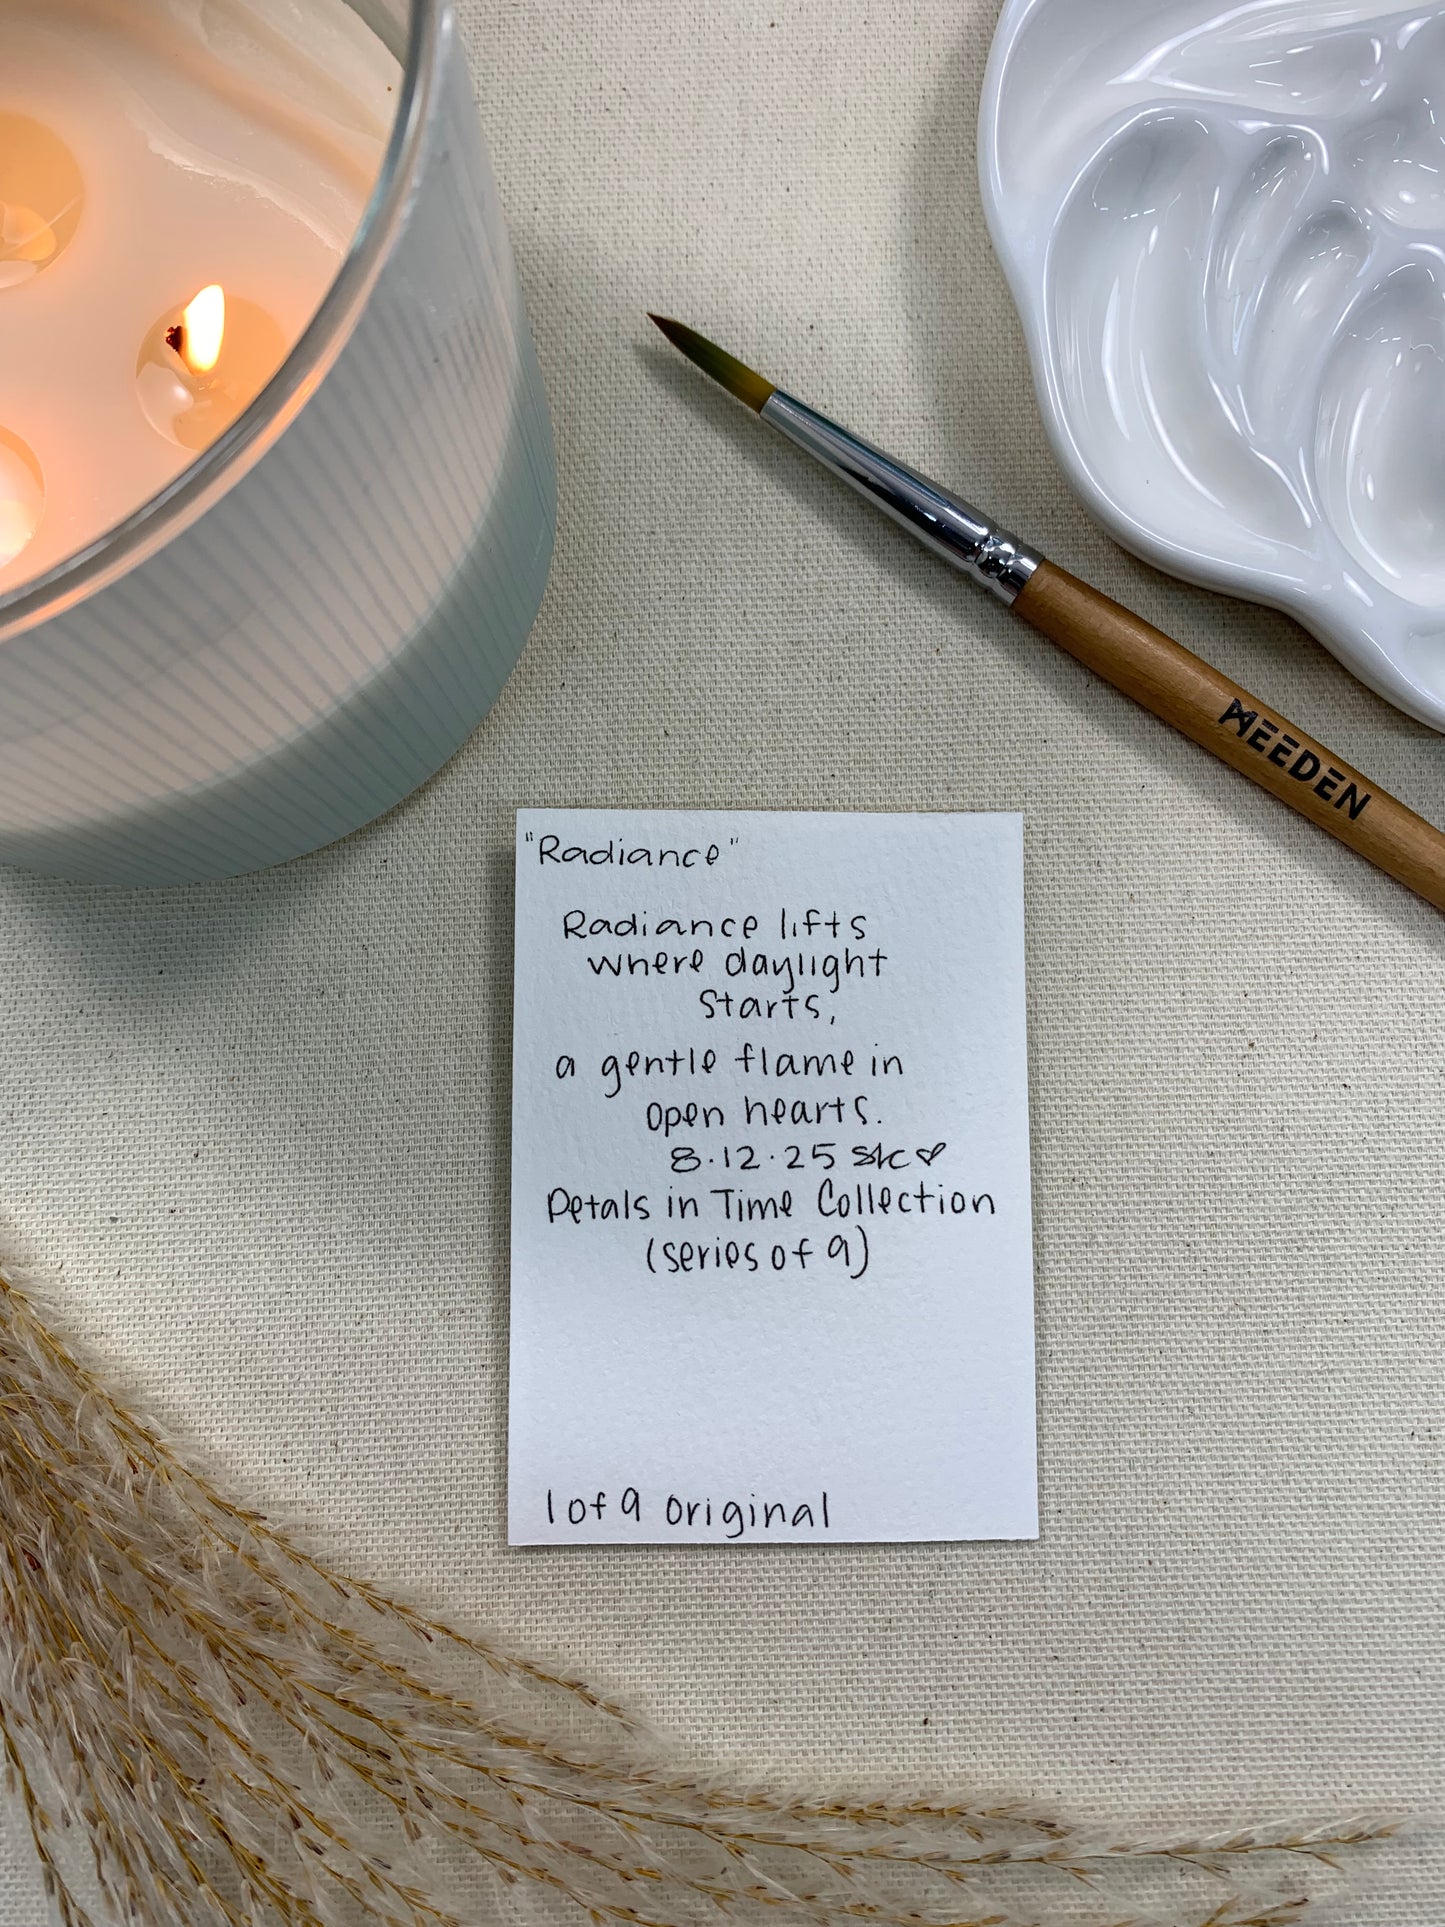 MEEDEN
"Radiance"
Radiance lifts
where daylight
starts,
a gentle flame in
open hearts.
8.12.25 skc♡
Petals in Time Collection
(series of 9)
1 of 9 original